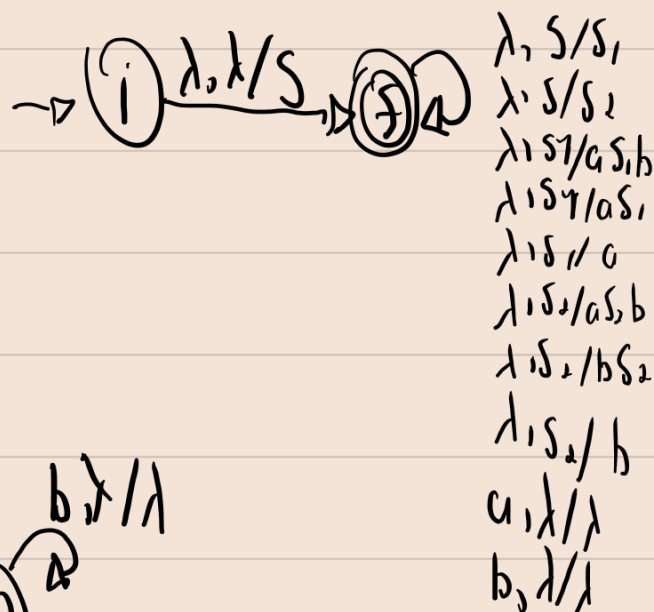 i λ,λ/S f
λ, S/S₁
λ, S/S₂
λ, S₁/aS₁b
λ, S₁/aS₁
λ, S₁/a
λ, S₂/aS₂b
λ, S₂/bS₂
λ, S₂/b
b,λ/λ
a, λ/λ
b, λ/λ